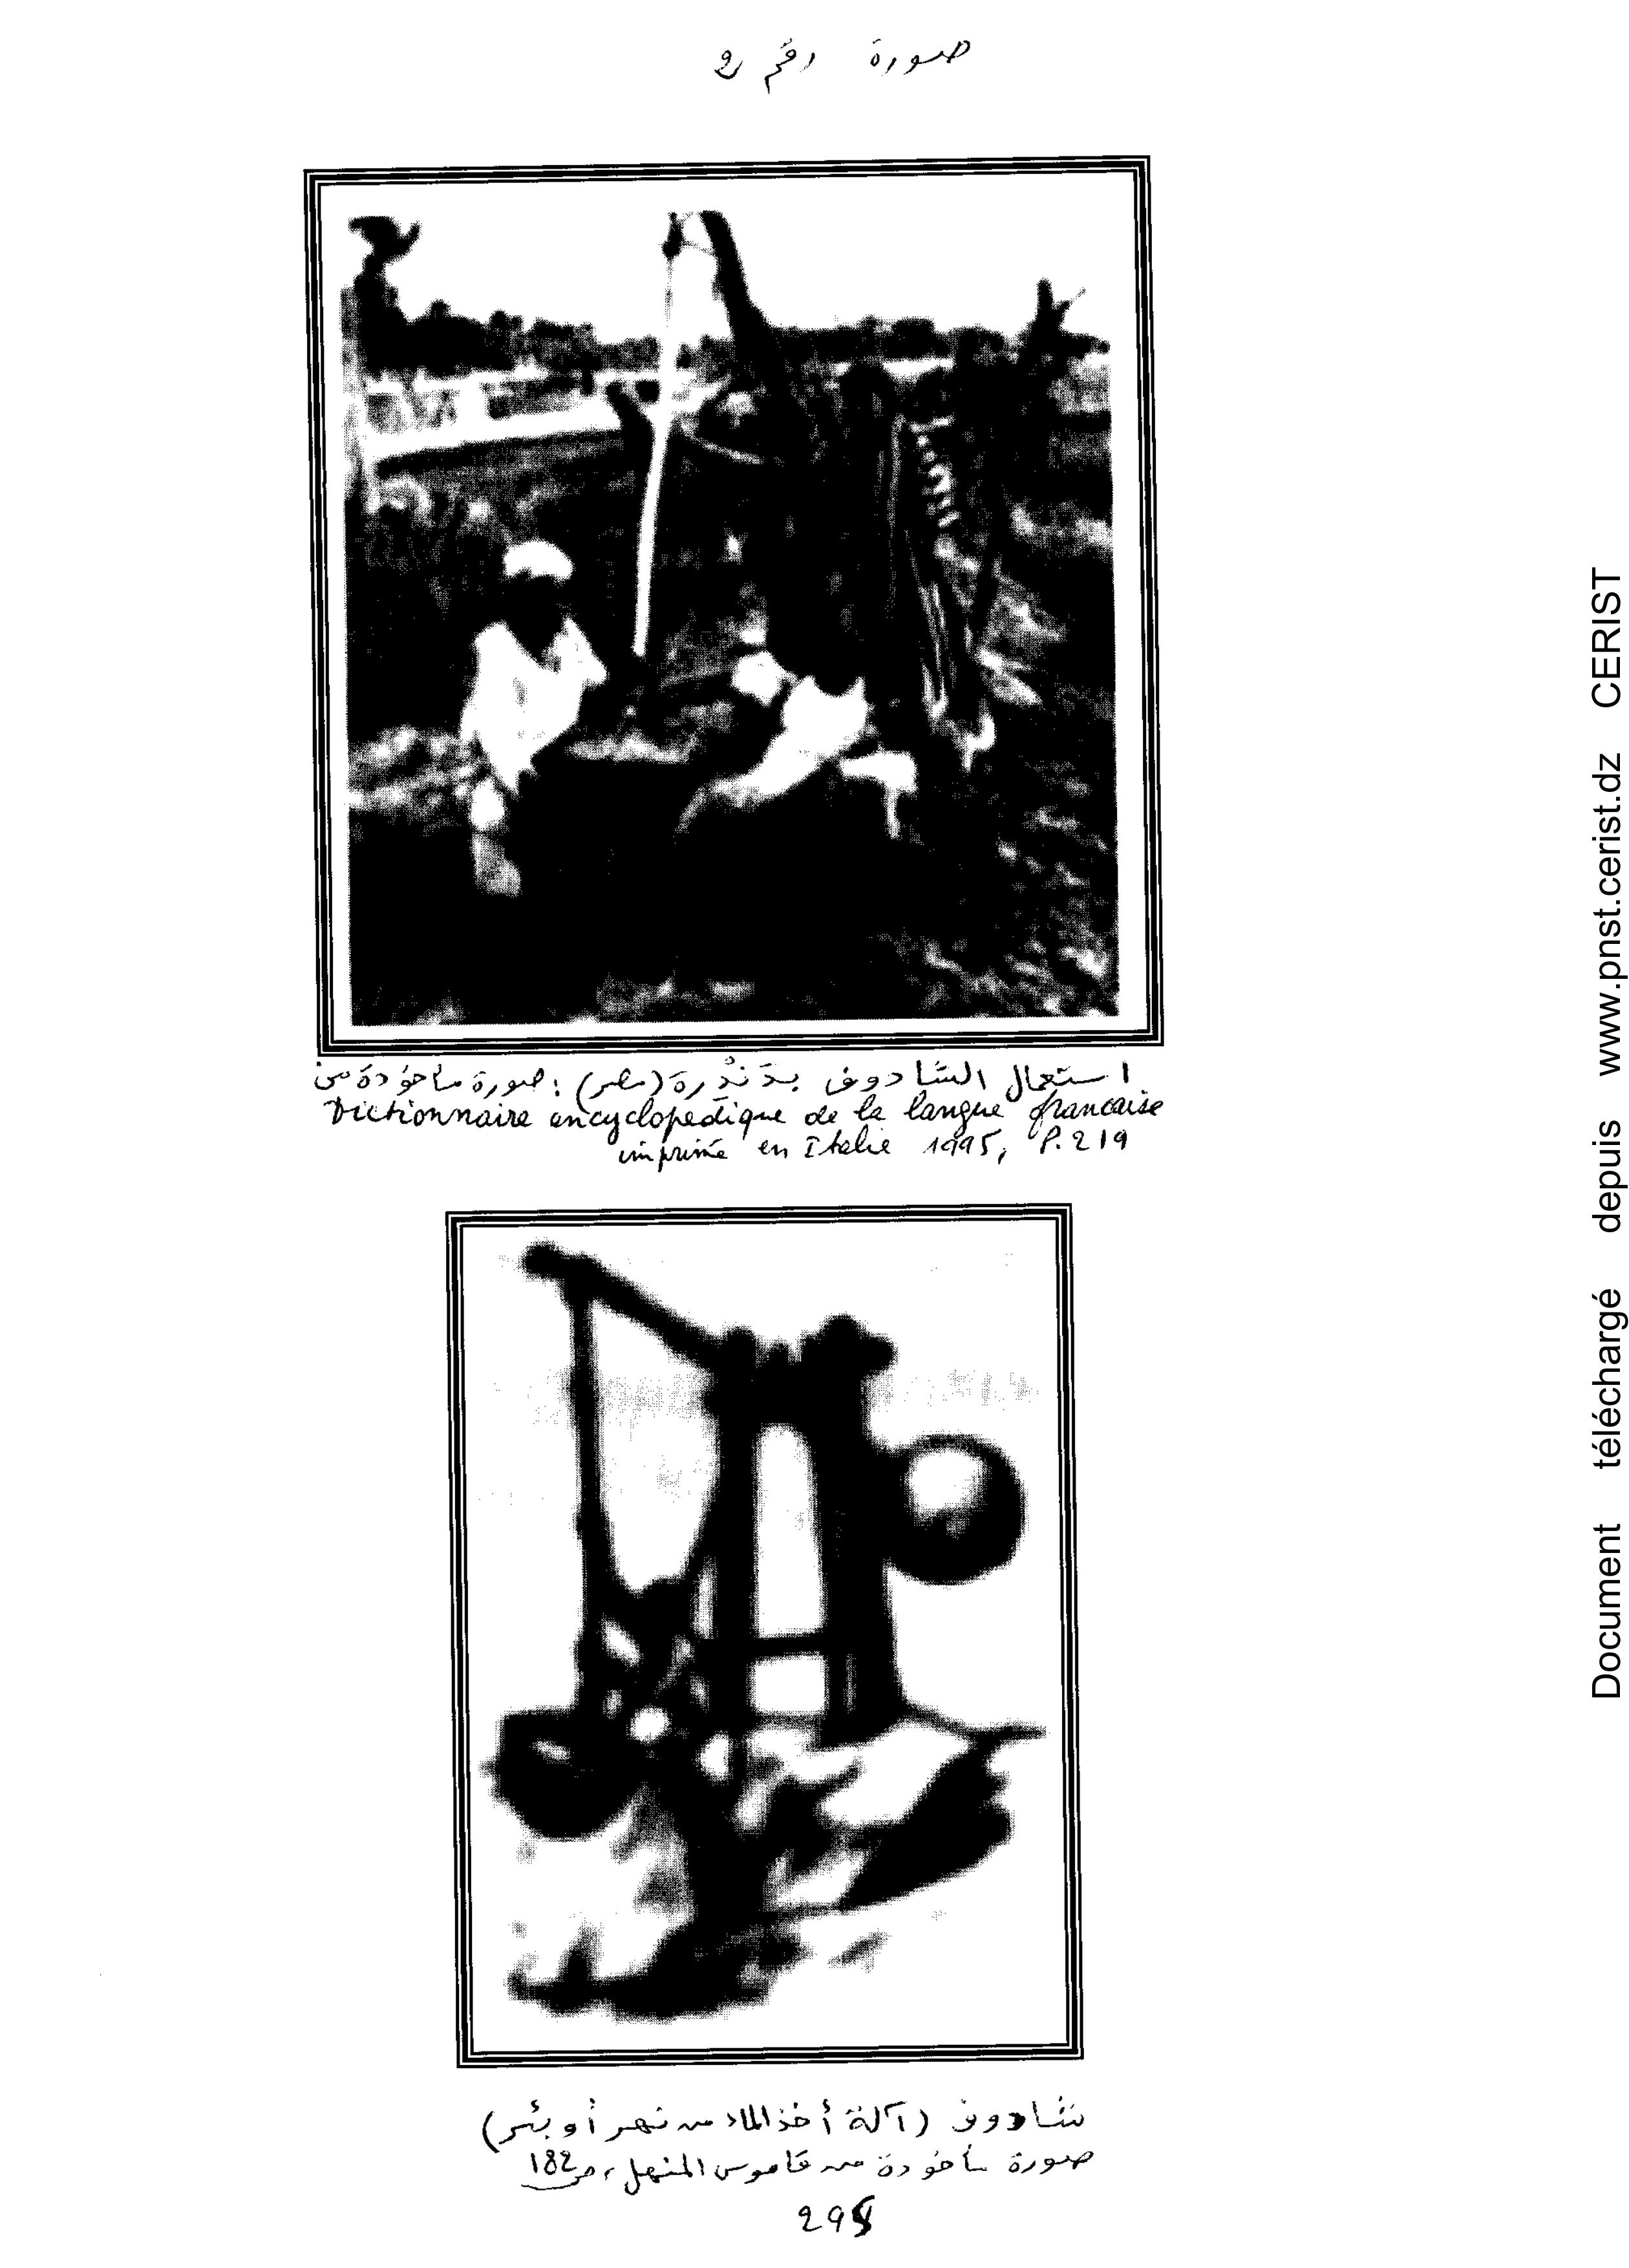 صورة رقم 2
استعمال الشادوف بدَنْدَرة (مصر) : صورة مأخوذة من
Dictionnaire encyclopedique de la langue francaise
imprimé en Italie 1995, P. 219
شادوف (آلة أخذ الماء من نهر أو بئر)
صورة مأخوذة من قاموس المنهل، ص 182
Document téléchargé depuis www.pnst.cerist.dz CERIST